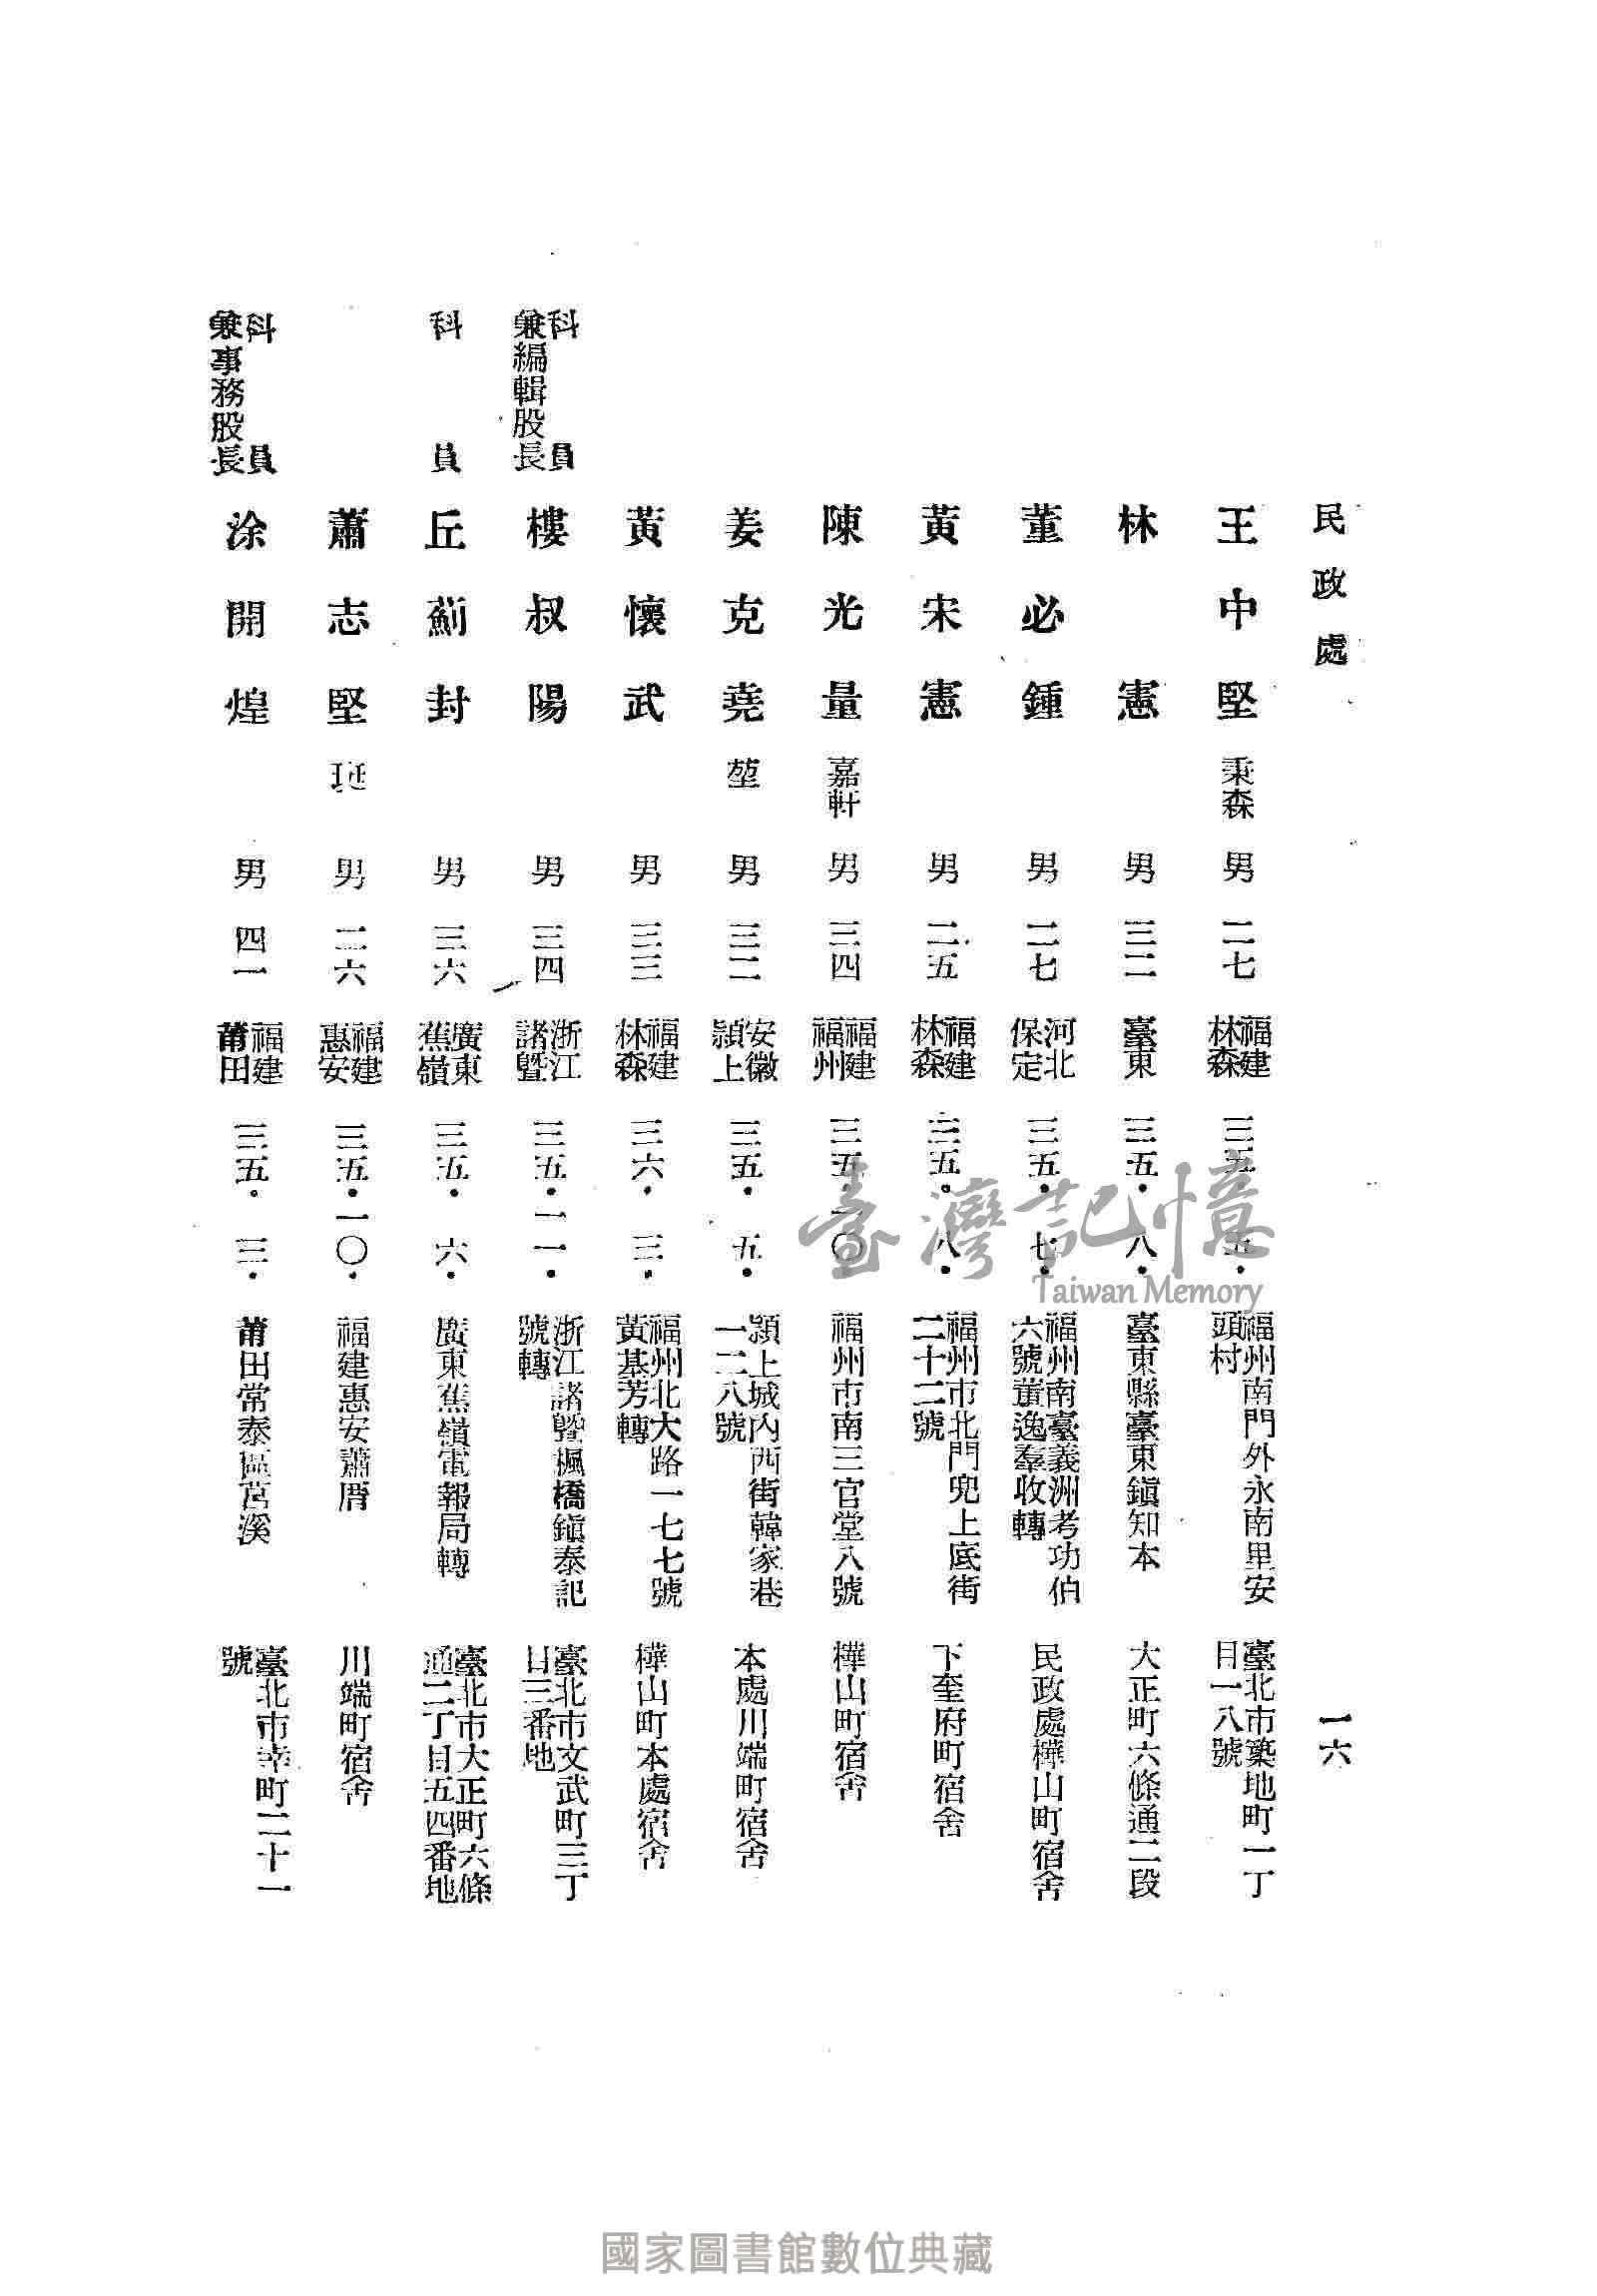 民政處
一六
王中堅 秉森 男 二七 福建林森 三五・五・ 福州南門外永南里安頭村 臺北市築地町一丁目一八號
林憲 男 三二 臺東 三五・八・ 臺東縣臺東鎮知本 大正町六條通二段
董必鍾 男 二七 河北保定 三五・七・ 福州南臺義洲考功伯六號董逸羣收轉 民政處樺山町宿舍
黃宋憲 男 二五 福建林森 三五・八・ 福州市北門兜上底街二十二號 下奎府町宿舍
陳光量 嘉軒 男 三四 福建福州 三五・一〇・ 福州市南三官堂八號 樺山町宿舍
姜克堯 堃 男 三二 安徽潁上 三五・五・ 潁上城內西街韓家巷一二八號 本處川端町宿舍
黃懷武 男 三三 福建林森 三六・三・ 福州北大路一七七號黃基芳轉 樺山町本處宿舍
科員兼編輯股長 樓叔陽 男 三四 浙江諸暨 三五・一一・ 浙江諸暨楓橋鎮泰記號轉 臺北市文武町三丁目三番地
科員 丘薊封 男 三六 廣東蕉嶺 三五・六・ 廣東蕉嶺電報局轉 臺北市大正町六條通二丁目五四番地
蕭志堅 珽 男 二六 福建惠安 三五・一〇・ 福建惠安蕭厝 川端町宿舍
科員兼事務股長 涂開煌 男 四一 福建莆田 三五・三・ 莆田常泰區莒溪 臺北市幸町二十一號
臺灣記憶
Taiwan Memory
國家圖書館數位典藏